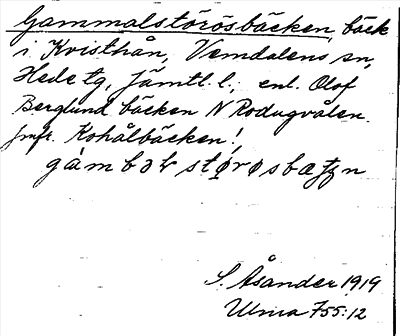 Gammalstörösbäcken, bäck
i Kvisthån, Vemdalens sn,
Hede tg, Jämtl. l.; enl. Olof
Berglund bäcken N Rodugvålen.
Jmfr. Kohålbäcken!
S. Åsander 1919
Ulma 755:12